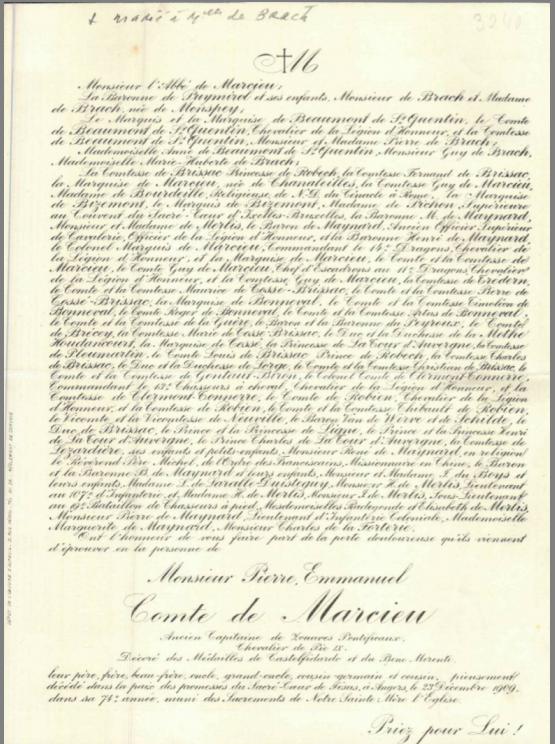 + marié à Mlle de Brach
3240
Monsieur l'Abbé de Marcieu;
La Baronne de Puymirol et ses enfants, Monsieur de Brach et Madame
de Brach, née de Monspey;
Le Marquis et la Marquise de Beaumont de St Quentin, le Comte
de Beaumont de St Quentin, Chevalier de la Légion d'Honneur, et la Comtesse
de Beaumont de St Quentin, Monsieur et Madame Pierre de Brach;
Mademoiselle Anne de Beaumont de St Quentin, Monsieur Guy de Brach,
Mademoiselle Marie-Huberte de Brach;
La Comtesse de Brissac Princesse de Robech, la Comtesse Fernand de Brissac,
la Marquise de Marcieu, née de Chanaleilles, la Comtesse Guy de Marcieu,
Madame de Bourdeille, Religieuse de N.D. du Cénacle à Rome, la Marquise
de Bizemont, le Marquis de Bizemont, Madame de Archon, Supérieure
au Couvent du Sacré-Cœur d'Ixelles-Bruxelles, la Baronne M. de Maynard,
Monsieur et Madame de Merlis, le Baron de Maynard, Ancien Officier Supérieur
de Cavalerie, Officier de la Légion d'Honneur, et la Baronne Henri de Maynard,
le Colonel Marquis de Marcieu, Commandant le 14e Dragons, Chevalier de
la Légion d'Honneur, et la Marquise de Marcieu, le Comte et la Comtesse de
Marcieu, le Comte Guy de Marcieu, Chef d'Escadrons au 11e Dragons, Chevalier
de la Légion d'Honneur, et la Comtesse Guy de Marcieu, la Comtesse de Gredern,
le Comte et la Comtesse Maurice de Cossé-Brissac, le Comte et la Comtesse Pierre de
Cossé-Brissac, la Marquise de Bonneval, le Comte et la Comtesse Timoléon de
Bonneval, le Comte Roger de Bonneval, le Comte et la Comtesse Artus de Bonneval,
le Comte et la Comtesse de la Guère, le Baron et la Baronne du Peyroux, le Comte
de Briey, la Comtesse Marie de Cossé-Brissac, le Duc et la Duchesse de la Mothe
Houdancourt, la Marquise de Cossé, la Princesse de La Tour d'Auvergne, la Comtesse
de Pleumartin, le Comte Louis de Brissac Prince de Robech, la Comtesse Charles
de Brissac, le Duc et la Duchesse de Lorge, le Comte et la Comtesse Christian de Brissac, le
Comte et la Comtesse de Gontaut-Biron, le Colonel Comte de Clermont-Tonnerre,
Commandant le 13e Chasseurs à cheval, Chevalier de la Légion d'Honneur, et la
Comtesse de Clermont-Tonnerre, le Comte de Robien, Chevalier de la Légion
d'Honneur, et la Comtesse de Robien, le Comte et la Comtesse Thibault de Robien,
le Vicomte et la Vicomtesse de Neuville, le Baron Van de Werve et de Schilde, le
Duc de Brissac, le Prince et la Princesse de Ligne, le Prince et la Princesse Henri
de La Tour d'Auvergne, le Prince Charles de La Tour d'Auvergne, la Comtesse de
Lézardière, ses enfants et petits-enfants, Monsieur René de Maynard, en religion
le Révérend Père Michel, de l'Ordre des Franciscains, Missionnaire en Chine, le Baron
et la Baronne B. de Maynard et leurs enfants, Monsieur et Madame J. du Boys et
leurs enfants, Madame L. de Laralle-Duistéguy, Monsieur H. de Merlis, Lieutenant
au 107e d'Infanterie, et Madame H. de Merlis, Monsieur J. de Merlis, Sous-Lieutenant
au 19e Bataillon de Chasseurs à pied, Mesdemoiselles Radegonde et Elisabeth de Merlis,
Monsieur Pierre de Maynard, Lieutenant d'Infanterie Coloniale, Mademoiselle
Marguerite de Maynard, Monsieur Charles de la Forterie.
Ont l'honneur de vous faire part de la perte douloureuse qu'ils viennent
d'éprouver en la personne de
Monsieur Pierre, Emmanuel
Comte de Marcieu
Ancien Capitaine de Zouaves Pontificaux,
Chevalier de Pie IX.
Décoré des Médailles de Castelfidardo et du Bene Merente.
leur père, frère, beau-frère, oncle, grand-oncle, cousin-germain et cousin, pieusement
décédé dans la paix des promesses du Sacré-Cœur de Jésus, à Angers, le 23 Décembre 1909,
dans sa 74e année, muni des Sacrements de Notre Sainte Mère l'Eglise.
Priez pour Lui!